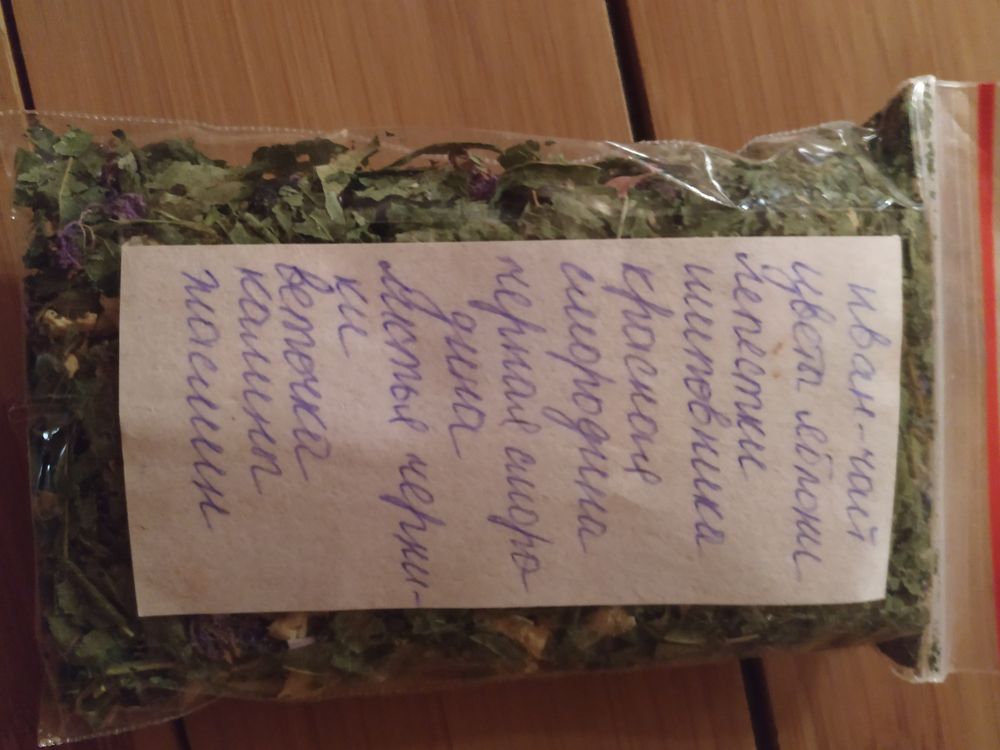 иван-чай
цветы яблони
лепестки
шиповника
красная
смородина
черная сморо
дина
листья черни-
ки
веточка
калины
жасмин